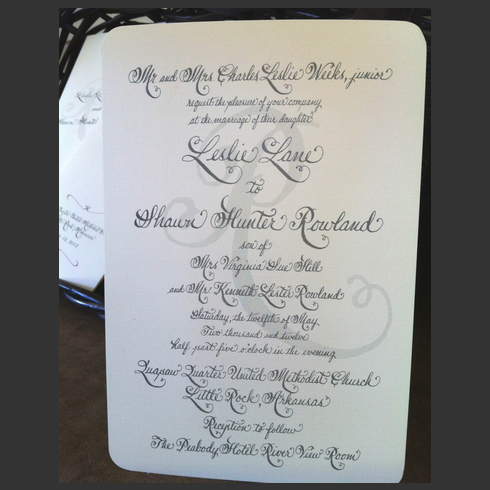 Mr and Mrs Charles Leslie Weeks, junior
request the pleasure of your company
at the marriage of their daughter
Leslie Lane
to
Shawn Hunter Rowland
son of
Mrs. Virginia Sue Hill
and Mr. Kenneth Lester Rowland
Saturday, the twelfth of May
Two thousand and twelve
half past five o'clock in the evening
Quapaw Quarter United Methodist Church
Little Rock, Arkansas
Reception to follow
The Peabody Hotel River View Room